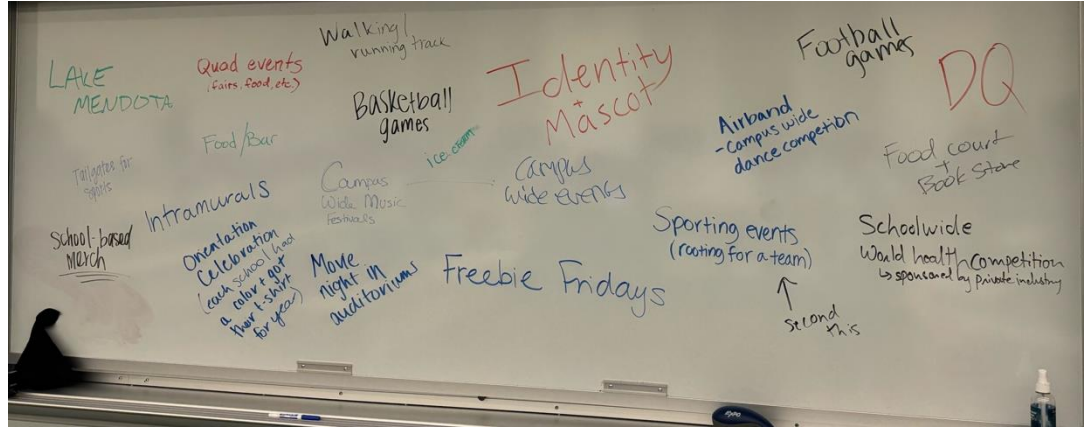 LAKE
MENDOTA
Quad events
(fairs, food, etc.)
Walking/
running track
Basketball
games
Identity
+
Mascot
Football
games
DQ
Food/Bar
ice cream
Airband
- campus wide
dance competion
Food court
+
Book Store
Tailgates for
sports
Intramurals
Campus
Wide Music
Festivals
campus
wide events
School-based
merch
Orientation
Celebration
(each school had
a color + got
their t-shirt
for year)
Movie
night in
auditoriums
Freebie Fridays
Sporting events
(rooting for a team)
↑
second
this
Schoolwide
World health competition
↳ sponsored by private industry
EXPO